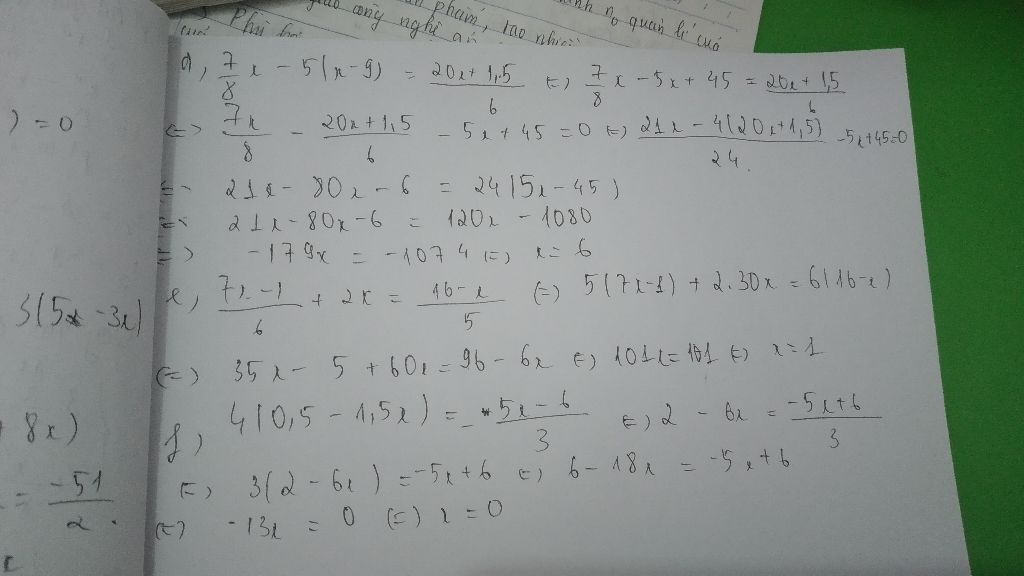 phẩm, tạo nhiều
quản lí cuả
công nghệ
d, 7/8 x - 5(x-9) = (20x+1,5)/6 <=> 7/8 x - 5x + 45 = (20x+1,5)/6
<=> 7x/8 - (20x+1,5)/6 - 5x + 45 = 0 <=> (21x - 4(20x+1,5))/24 - 5x+45=0
<=> 21x - 80x - 6 = 24(5x - 45)
<=> 21x - 80x - 6 = 120x - 1080
<=> -179x = -1074 <=> x = 6
e, (7x-1)/6 + 2x = (16-x)/5 <=> 5(7x-1) + 2.30x = 6(16-x)
<=> 35x - 5 + 60x = 96 - 6x <=> 101x = 101 <=> x = 1
f, 4(0,5 - 1,5x) = -(5x-6)/3 <=> 2 - 6x = (-5x+6)/3
<=> 3(2 - 6x) = -5x + 6 <=> 6 - 18x = -5x + 6
<=> -13x = 0 <=> x = 0
) = 0
3(5x - 3x)
8x)
= -51/2 .